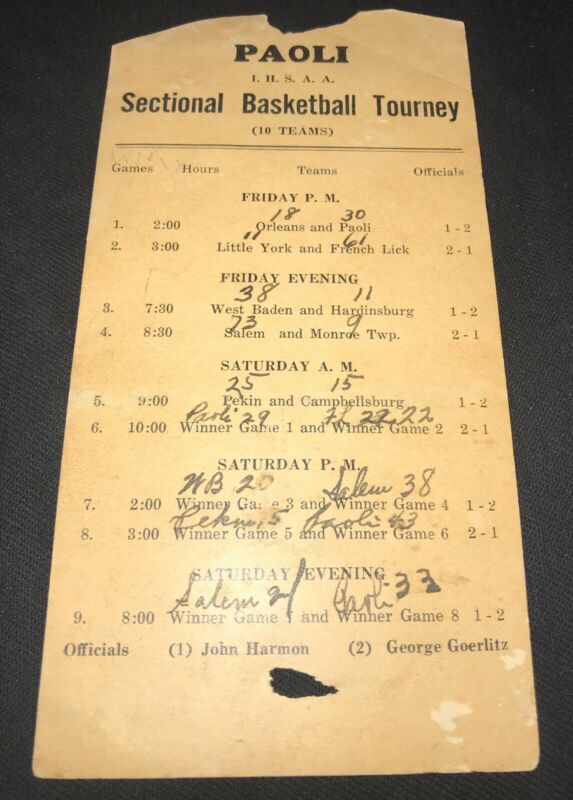 PAOLI
I. H. S. A. A.
Sectional Basketball Tourney
(10 TEAMS)
Games Hours Teams Officials
FRIDAY P. M.
18 30
1. 2:00 Orleans and Paoli 1 - 2
11 61
2. 3:00 Little York and French Lick 2 - 1
FRIDAY EVENING
38 11
3. 7:30 West Baden and Hardinsburg 1 - 2
73 9
4. 8:30 Salem and Monroe Twp. 2 - 1
SATURDAY A. M.
25 15
5. 9:00 Pekin and Campbellsburg 1 - 2
Paoli 29 FL 22
6. 10:00 Winner Game 1 and Winner Game 2 2 - 1
SATURDAY P. M.
WB 20 Salem 38
7. 2:00 Winner Game 3 and Winner Game 4 1 - 2
Pekin Paoli 43
8. 3:00 Winner Game 5 and Winner Game 6 2 - 1
SATURDAY EVENING
Salem 21 Paoli 33
9. 8:00 Winner Game 7 and Winner Game 8 1 - 2
Officials (1) John Harmon (2) George Goerlitz